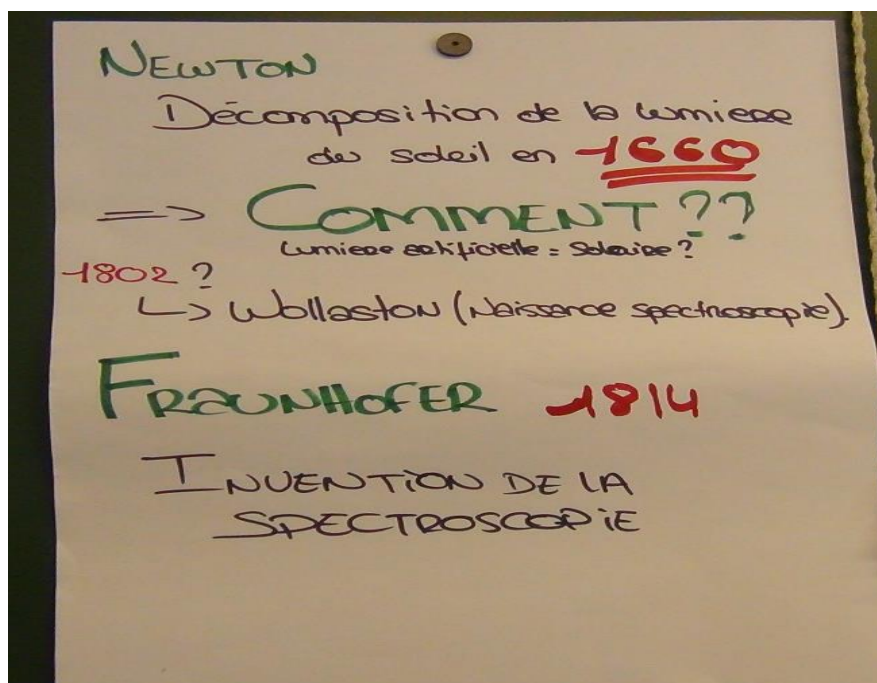 NEWTON
Décomposition de la lumiere
du soleil en 1660
=> COMMENT ??
lumiere artificielle = solaire ?
1802 ?
↳ Wollaston (Naissance spectroscopie).
FRAUNHOFER 1814
INVENTION DE LA
SPECTROSCOPIE